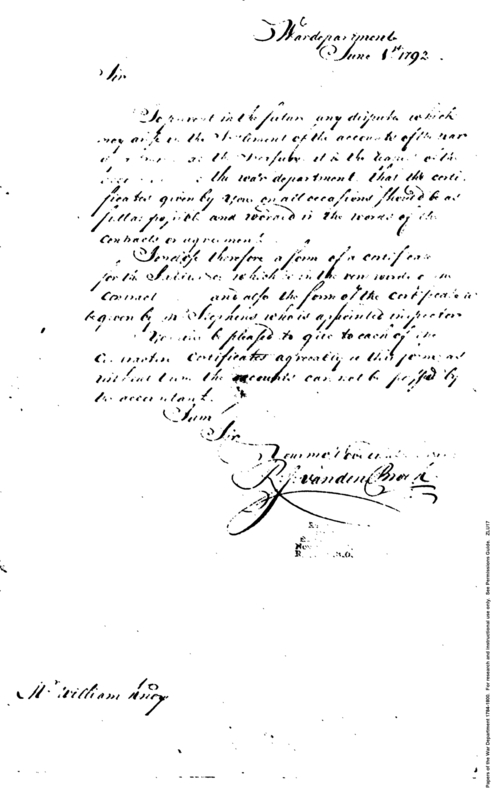 Wardepartment
June 1st 1792.
Sir
To prevent in the future any disputes which
may arise in the Settlement of the accounts of the war
the Treasury
the war department that the certi
ficates given by you on all occasions should be as
full as possible and worded in the words of the
contracts or agreement.
I enclose therefore a form of a certificate
for the which is in the very words of the
Contract and also the form of the certificate to
be given by Mr Stephens who is appointed inspector
You will be pleased to give to each of the
Contractors Certificates agreeably to this form, as
without them the accounts can not be passed by
the accountant.
I am
Sir
Your most
R. J. Vanden Broek
Mr William Knox
Papers of the War Department 1784-1800. For research and instructional use only. See Permissions Guide. ZLU17